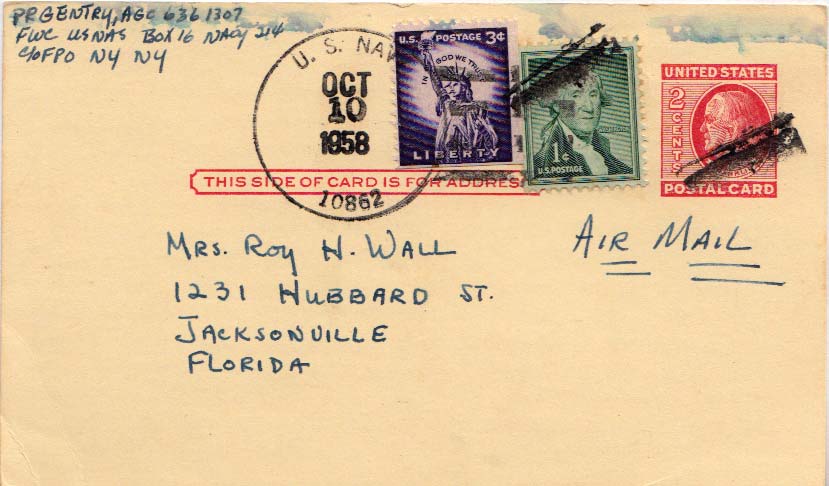 PRGENTRY, AGC 636 1307
FWC USNAS BOX 16 NAVY 214
C/OFPO NY NY
U. S. NAV
OCT
10
1958
10862
U.S. POSTAGE 3¢
IN GOD WE TRUST
LIBERTY
1¢
U.S. POSTAGE
UNITED STATES
2 CENTS
POSTAL CARD
THIS SIDE OF CARD IS FOR ADDRESS
AIR MAIL
MRS. ROY H. WALL
1231 HUBBARD ST.
JACKSONVILLE
FLORIDA